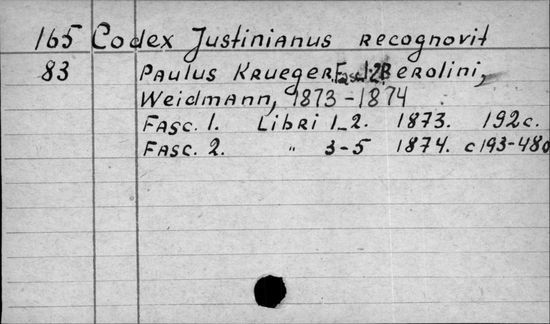 165 Codex Justinianus recognovit
83 Paulus Krueger. Fasc. 1-2. Berolini,
Weidmann, 1873-1874
Fasc. 1. Libri 1-2. 1873. 192 c.
Fasc. 2. " 3-5 1874. c 193-480